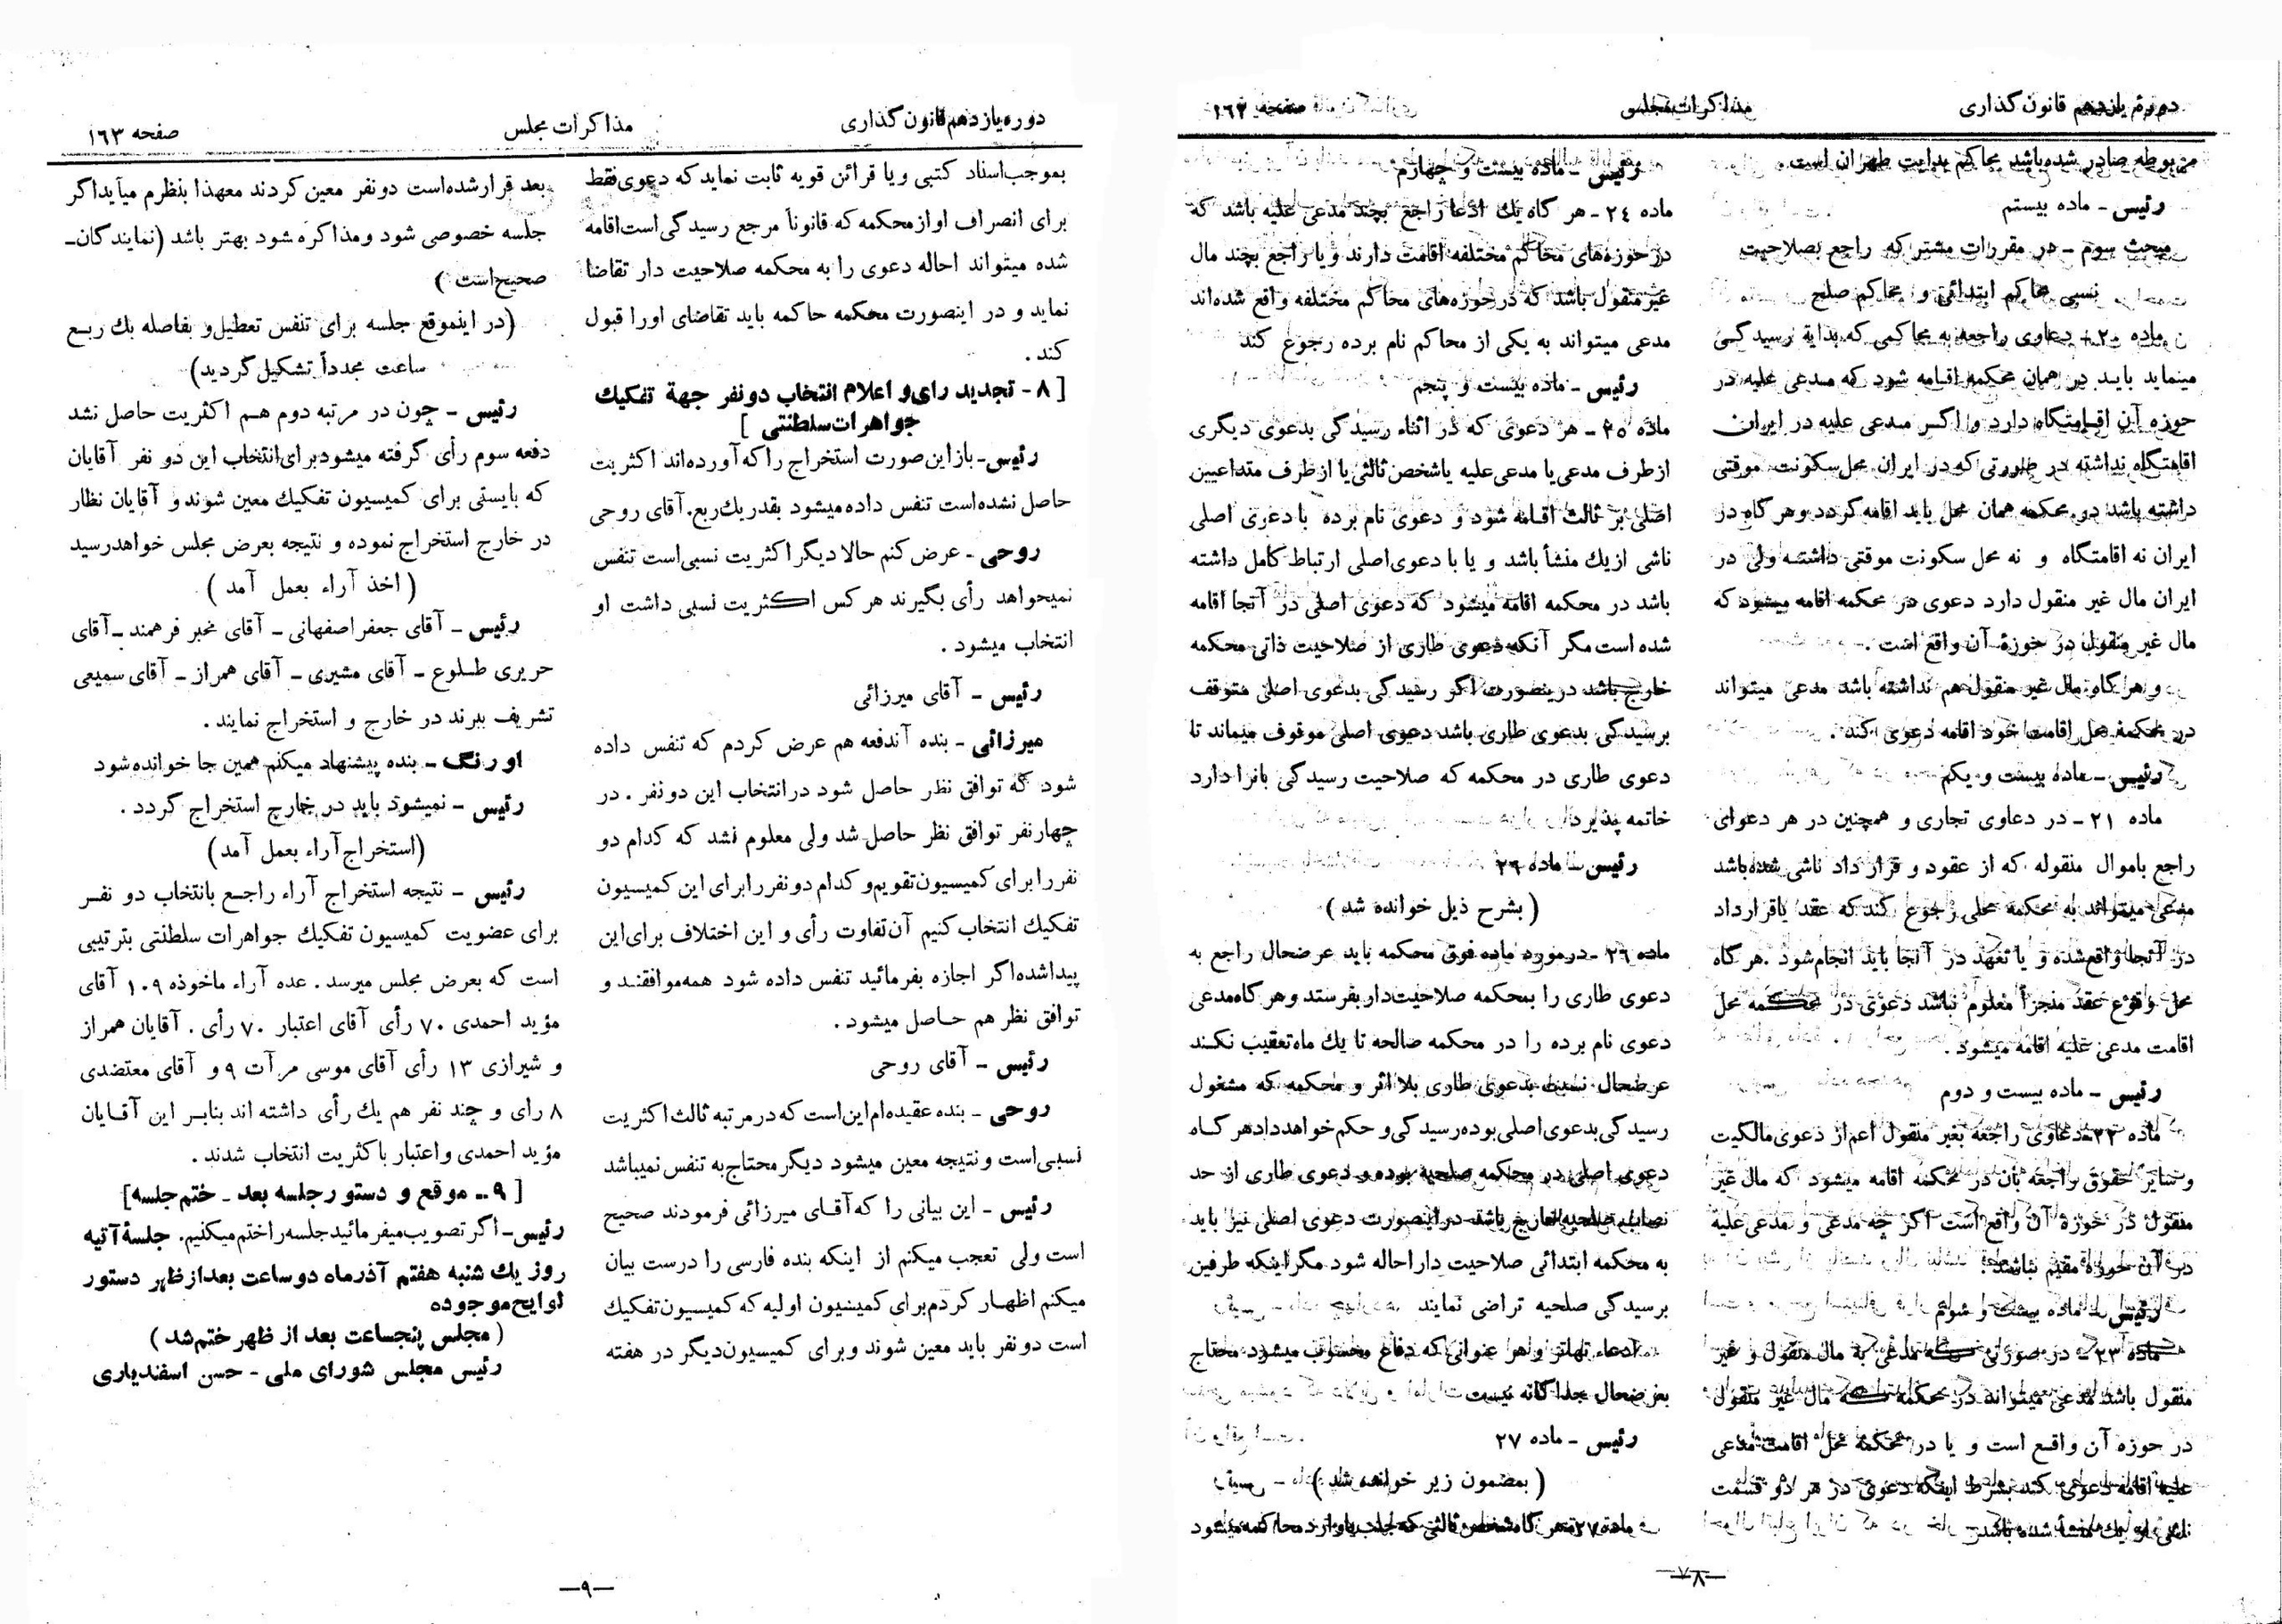 دورهٔ یازدهم قانون‌گذاری
مذاکرات مجلس
صفحه ۱۶۲
مربوطه صادر شده باشد محاکم بدایت طهران است.
رئیس - ماده بیستم
مبحث سوم - در مقررات مشترکه راجع بصلاحیت
نسبی محاکم ابتدائی و محاکم صلح
ماده ۲۰ - دعاوی راجعه به محاکمی که بدایة رسیدگی
مینماید باید در همان محکمه اقامه شود که مدعی علیه در
حوزه آن اقامتگاه دارد و اگر مدعی علیه در ایران
اقامتگاه نداشته در صورتی‌که در ایران محل سکونت موقتی
داشته باشد در محکمه همان محل باید اقامه گردد و هر گاه در
ایران نه اقامتگاه و نه محل سکونت موقتی داشته ولی در
ایران مال غیر منقول دارد دعوی در محکمه اقامه میشود که
مال غیر منقول در حوزهٔ آن واقع است .
و هر گاه مال غیر منقول هم نداشته باشد مدعی میتواند
در محکمه محل اقامت خود اقامه دعوی کند .
رئیس - ماده بیست و یکم
ماده ۲۱ - در دعاوی تجاری و همچنین در هر دعوای
راجع باموال منقوله که از عقود و قرار داد ناشی شده باشد
مدعی میتواند به محکمه محلی رجوع کند که عقد یا قرارداد
در آنجا واقع شده و یا تعهد در آنجا باید انجام شود . هر گاه
محل وقوع عقد منجزاً معلوم نباشد دعوی در محکمه محل
اقامت مدعی علیه اقامه میشود .
رئیس - ماده بیست و دوم
ماده ۲۲ - دعاوی راجعه بغیر منقول اعم از دعوی مالکیت
و سایر حقوق راجعه بآن در محکمه اقامه میشود که مال غیر
منقول در حوزه آن واقع است اگر چه مدعی و مدعی علیه
در آن حوزه مقیم نباشند .
رئیس - ماده بیست و سوم
ماده ۲۳ - در صورتی که مدعی به مال منقول و غیر
منقول باشد مدعی میتواند در محکمه که مال غیر منقول
در حوزه آن واقع است و یا در محکمه محل اقامت مدعی
علیه اقامه دعوی کند بشرط اینکه دعوی در هر دو قسمت
ناشی از یک منشأ شده باشد
رئیس - ماده بیست و چهارم
ماده ۲۴ - هر گاه یك ادعا راجع بچند مدعی علیه باشد که
در حوزه‌های محاکم مختلفه اقامت دارند و یا راجع بچند مال
غیر منقول باشد که در حوزه‌های محاکم مختلفه واقع شده‌اند
مدعی میتواند به یکی از محاکم نام برده رجوع کند
رئیس - ماده بیست و پنجم
ماده ۲۵ - هر دعوی که در اثناء رسیدگی بدعوی دیگری
از طرف مدعی یا مدعی علیه یا شخص ثالثی یا از طرف متداعیین
اصلی بر ثالث اقامه شود و دعوی نام برده با دعوی اصلی
ناشی از یك منشأ باشد و یا با دعوی اصلی ارتباط کامل داشته
باشد در محکمه اقامه میشود که دعوی اصلی در آنجا اقامه
شده است مگر آنکه دعوی طاری از صلاحیت ذاتی محکمه
خارج باشد در ینصورت اگر رسیدگی بدعوی اصلی متوقف
برسیدگی بدعوی طاری باشد دعوی اصلی موقوف میماند تا
دعوی طاری در محکمه که صلاحیت رسیدگی بانرا دارد
خاتمه پذیرد
رئیس - ماده ۲۶
( بشرح ذیل خوانده شد )
ماده ۲۶ - در مورد ماده فوق محکمه باید عرضحال راجع به
دعوی طاری را بمحکمه صلاحیت‌دار بفرستد و هر گاه مدعی
دعوی نام برده را در محکمه صالحه تا یك ماه تعقیب نکند
عرضحال نسبت بدعوی طاری بلا اثر و محکمه که مشغول
رسیدگی بدعوی اصلی بوده رسیدگی و حکم خواهد داد هر گاه
دعوی اصلی در محکمه صلحیه بوده و دعوی طاری از حد
نصاب صلحیه خارج باشد در اینصورت دعوی اصلی نیز باید
به محکمه ابتدائی صلاحیت دار احاله شود مگر اینکه طرفین
برسیدگی صلحیه تراضی نمایند
ادعاء تهاتر و هر عنوانی که دفاع محسوب میشود محتاج
بعرضحال جداگانه نیست
رئیس - ماده ۲۷
( بمضمون زیر خوانده شد )
ماده ۲۷ - هر گاه شخص ثالثی که جلب یا وارد محاکمه میشود
—۸—
دوره یازدهم قانون‌گذاری
مذاکرات مجلس
صفحه ۱۶۳
بموجب اسناد کتبی و یا قرائن قویه ثابت نماید که دعوی فقط
برای انصراف او از محکمه که قانوناً مرجع رسیدگی است اقامه
شده میتواند احاله دعوی را به محکمه صلاحیت دار تقاضا
نماید و در اینصورت محکمه حاکمه باید تقاضای او را قبول
کند .
[ ۸ - تجدید رای و اعلام انتخاب دو نفر جهة تفکیك
جواهرات سلطنتی ]
رئیس - باز این صورت استخراج را که آورده‌اند اکثریت
حاصل نشده است تنفس داده میشود بقدر یك ربع. آقای روحی
روحی - عرض کنم حالا دیگر اکثریت نسبی است تنفس
نمیخواهد رأی بگیرند هر کس اکثریت نسبی داشت او
انتخاب میشود .
رئیس - آقای میرزائی
میرزائی - بنده آندفعه هم عرض کردم که تنفس داده
شود که توافق نظر حاصل شود در انتخاب این دو نفر . در
چهار نفر توافق نظر حاصل شد ولی معلوم نشد که کدام دو
نفر را برای کمیسیون تقویم و کدام دو نفر را برای این کمیسیون
تفکیك انتخاب کنیم آن تفاوت رأی و این اختلاف برای این
پیدا شده اگر اجازه بفرمائید تنفس داده شود همه موافقند و
توافق نظر هم حاصل میشود .
رئیس - آقای روحی
روحی - بنده عقیده‌ام این است که در مرتبه ثالث اکثریت
نسبی است و نتیجه معین میشود دیگر محتاج به تنفس نمیباشد
رئیس - این بیانی را که آقای میرزائی فرمودند صحیح
است ولی تعجب میکنم از اینکه بنده فارسی را درست بیان
میکنم اظهار کردم برای کمیسیون اولیه که کمیسیون تفکیك
است دو نفر باید معین شوند و برای کمیسیون دیگر در هفته
بعد قرار شده است دو نفر معین کردند معهذا بنظرم میآید اگر
جلسه خصوصی شود و مذاکره شود بهتر باشد (نمایندگان -
صحیح است )
(در اینموقع جلسه برای تنفس تعطیل و بفاصله یك ربع
ساعت مجدداً تشکیل گردید)
رئیس - چون در مرتبه دوم هم اکثریت حاصل نشد
دفعه سوم رأی گرفته میشود برای انتخاب این دو نفر آقایان
که بایستی برای کمیسیون تفکیك معین شوند و آقایان نظار
در خارج استخراج نموده و نتیجه بعرض مجلس خواهد رسید
( اخذ آراء بعمل آمد )
رئیس - آقای جعفر اصفهانی - آقای مخبر فرهمند - آقای
حریری طلوع - آقای مشیری - آقای همراز - آقای سمیعی
تشریف ببرند در خارج و استخراج نمایند .
اورنگ - بنده پیشنهاد میکنم همین جا خوانده شود
رئیس - نمیشود باید در خارج استخراج گردد .
(استخراج آراء بعمل آمد)
رئیس - نتیجه استخراج آراء راجع بانتخاب دو نفر
برای عضویت کمیسیون تفکیك جواهرات سلطنتی بترتیبی
است که بعرض مجلس میرسد . عده آراء ماخوذه ۱۰۹ آقای
مؤید احمدی ۷۰ رأی آقای اعتبار ۷۰ رأی . آقایان همراز
و شیرازی ۱۳ رأی آقای موسی مرآت ۹ و آقای معتضدی
۸ رای و چند نفر هم یك رأی داشته اند بنابر این آقایان
مؤید احمدی و اعتبار باکثریت انتخاب شدند .
[ ۹ - موقع و دستور جلسه بعد - ختم جلسه]
رئیس - اگر تصویب میفرمائید جلسه را ختم میکنیم. جلسهٔ آتیه
روز یك شنبه هفتم آذرماه دو ساعت بعد از ظهر دستور
لوایح موجوده
( مجلس پنجساعت بعد از ظهر ختم شد )
رئیس مجلس شورای ملی - حسن اسفندیاری
—۹—